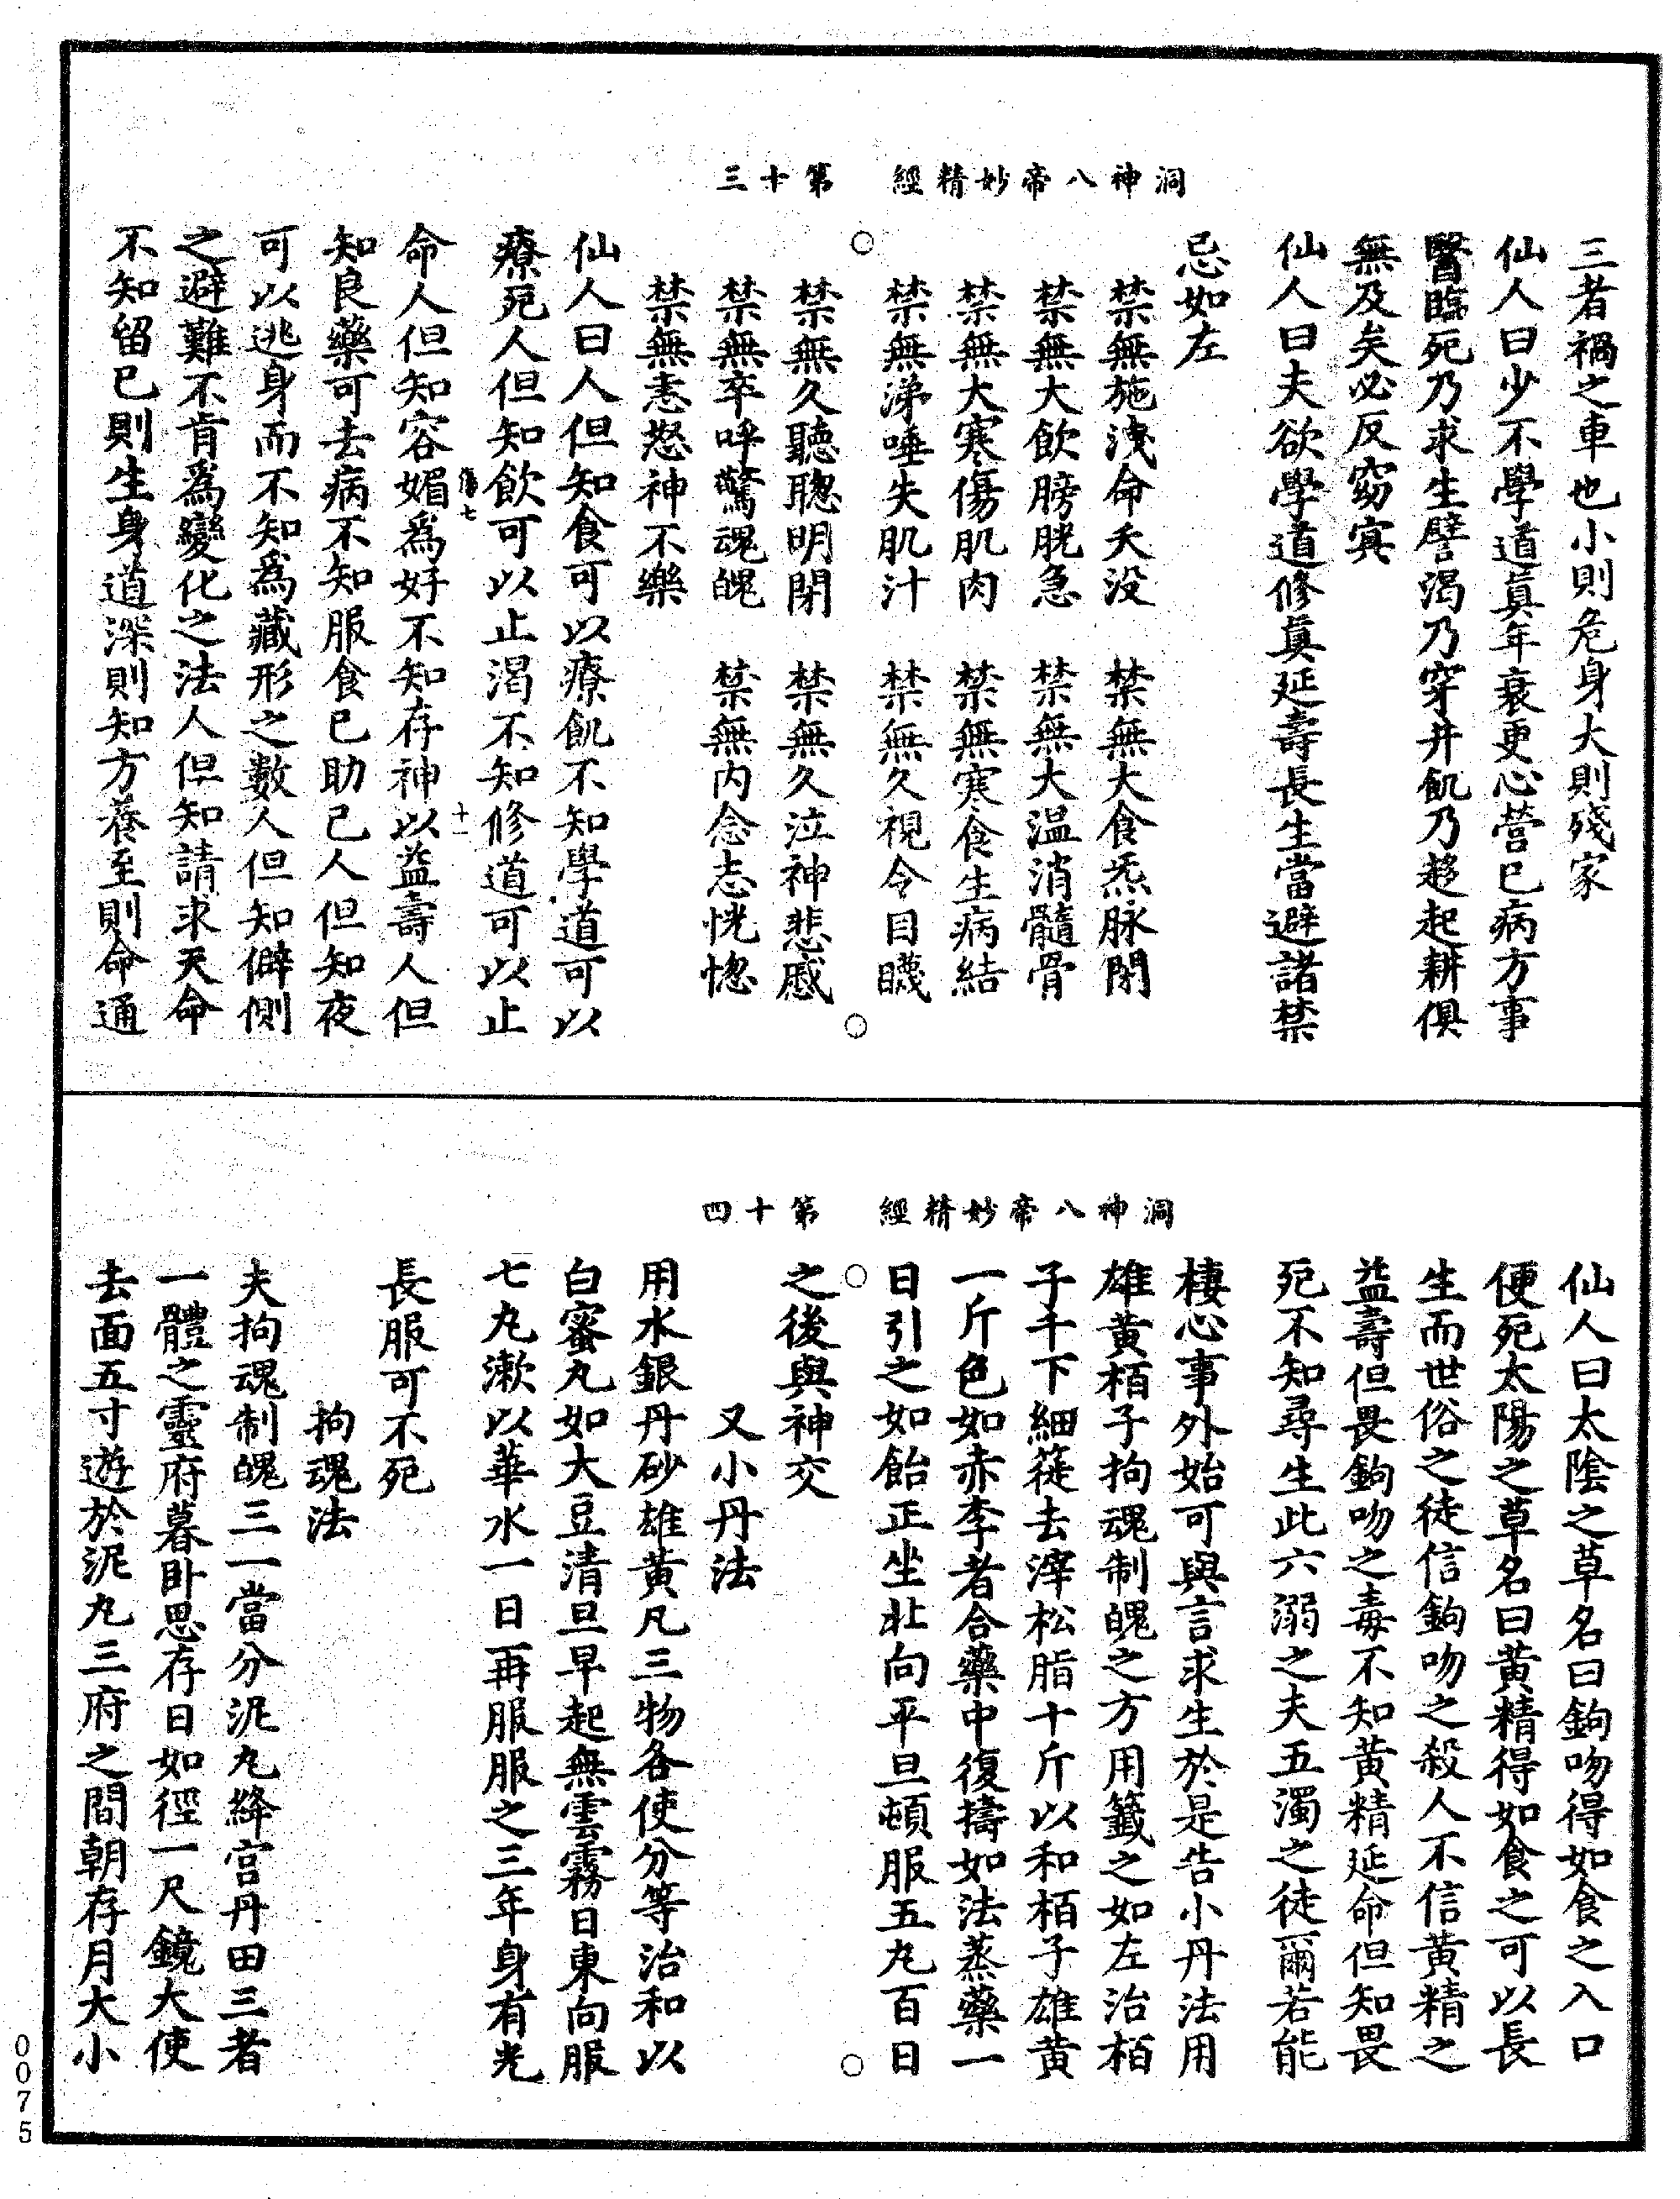 洞神八帝妙精經　第十三
三者禍之車也小則危身大則殘家
仙人曰少不學道眞年衰更心營已病方事
醫臨死乃求生譬渴乃穿井飢乃趍起耕俱
無及矣必反窈寘
仙人曰夫欲學道修眞延壽長生當避諸禁
忌如左
禁無施洩命夭没　禁無大食炁脉閉
禁無大飲膀胱急　禁無大温消髓骨
禁無大寒傷肌肉　禁無寒食生病結
禁無涕唾失肌汁　禁無久視令目䁾
禁無久聽聰明閉　禁無久泣神悲慼
禁無卒呼驚魂魄　禁無内念志恍惚
禁無恚怒神不樂
仙人曰人但知食可以療飢不知學道可以
療死人但知飲可以止渴不知修道可以止
傷七　十一
命人但知容媚爲好不知存神以益壽人但
知良藥可去病不知服食已助己人但知夜
可以逃身而不知爲藏形之數人但知僻側
之避難不肯爲變化之法人但知請求天命
不知留已則生身道深則知方養至則命通
洞神八帝妙精經　第十四
仙人曰太陰之草名曰鉤吻得如食之入口
便死太陽之草名曰黄精得如食之可以長
生而世俗之徒信鉤吻之殺人不信黄精之
益壽但畏鉤吻之毒不知黄精延命但知畏
死不知尋生此六溺之夫五濁之徒爾若能
棲心事外始可與言求生於是告小丹法用
雄黄栢子拘魂制魄之方用籤之如左治栢
子千下細簁去滓松脂十斤以和栢子雄黄
一斤色如赤李者合藥中復擣如法蒸藥一
日引之如飴正坐北向平旦頓服五丸百日
之後與神交
又小丹法
用水銀丹砂雄黄凡三物各使分等治和以
白蜜丸如大豆清旦早起無雲霧日東向服
七丸漱以華水一日再服服之三年身有光
長服可不死
拘魂法
夫拘魂制魄三一當分泥丸絳宫丹田三者
一體之靈府暮卧思存日如徑一尺鏡大使
去面五寸遊於泥丸三府之間朝存月大小
0075